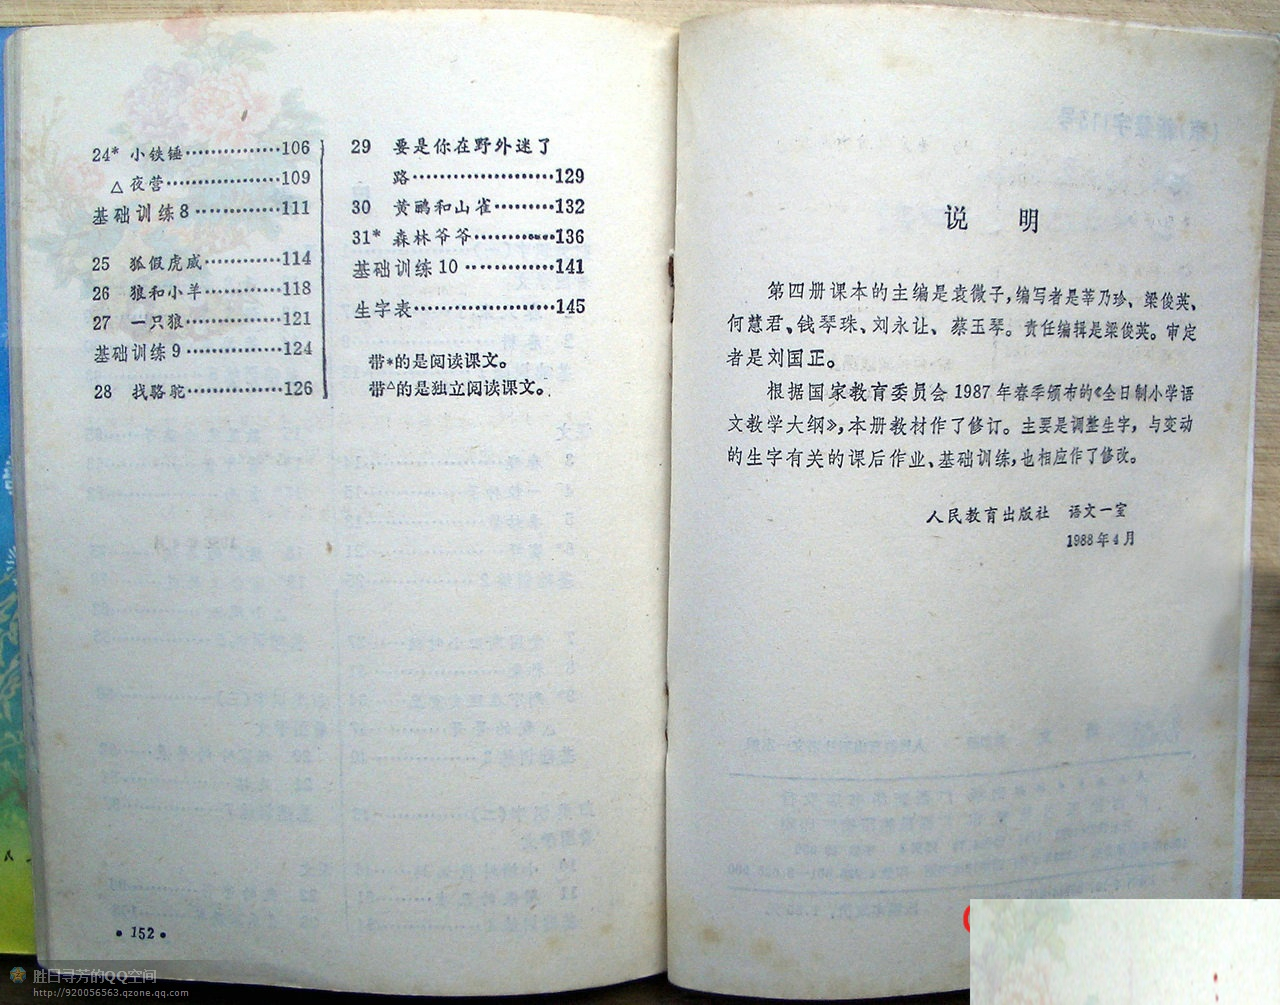 24* 小铁锤……………106
△夜营…………………109
基础训练8……………111
25 狐假虎威…………114
26 狼和小羊…………118
27 一只狼……………121
基础训练9……………124
28 找骆驼……………126
29 要是你在野外迷了
路…………………129
30 黄鹂和山雀………132
31* 森林爷爷…………136
基础训练10……………141
生字表…………………145
带*的是阅读课文。
带△的是独立阅读课文。
•152•
说 明
第四册课本的主编是袁微子,编写者是莘乃珍、梁俊英、
何慧君、钱琴珠、刘永让、蔡玉琴。责任编辑是梁俊英。审定
者是刘国正。
根据国家教育委员会1987年春季颁布的《全日制小学语
文教学大纲》,本册教材作了修订。主要是调整生字,与变动
的生字有关的课后作业、基础训练,也相应作了修改。
人民教育出版社 语文一室
1988年4月
胜日寻芳的QQ空间
http://920056563.qzone.qq.com